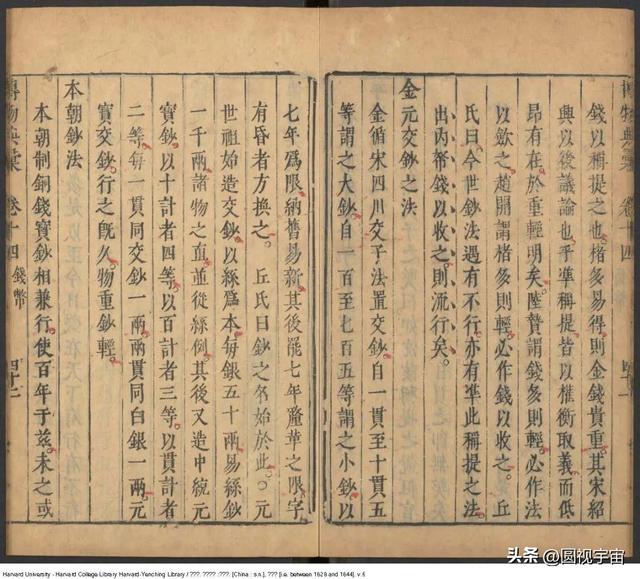 博物典彙 卷十四 四十一
錢以稱提之也。楮多易得則金錢貴重。其宋紹
興以後議論也。乎準稱提皆以權衡取義。而低
昂有在於重輕明矣。陸贄謂錢多則輕。必作法
以歛之。趙開謂楮多則輕。必作錢以收之。丘
氏曰。今世鈔法遇有不行。亦有準此稱提之法。
出內帑錢以收之。則流行矣。
金元交鈔之法
金循宋四川交子法置交鈔。自一貫至十貫五
等謂之大鈔。自一百至七百五等謂之小鈔。以
七年爲限。納舊易新。其後罷七年釐革之限。字
有昏者方換之。 丘氏曰鈔之名始於此。○元
世祖始造交鈔。以絲爲本。每銀五十兩。易絲鈔
一千兩。諸物之直。並從絲例。其後又造中統元
寶鈔。以十計者四等。以百計者三等。以貫計者
二等。每一貫同交鈔一兩。兩貫同白銀一兩。元
寶交鈔。行之既久。物重鈔輕。
本朝鈔法
本朝制銅錢寶鈔相兼行使。百年于兹。未之或
博物典彙 卷十四 錢幣 四十二
Harvard University - Harvard College Library Harvard-Yenching Library / ???. ???? :???. [China : s.n.], ??? [i.e. between 1628 and 1644]. v.6
头条 @圆视宇宙